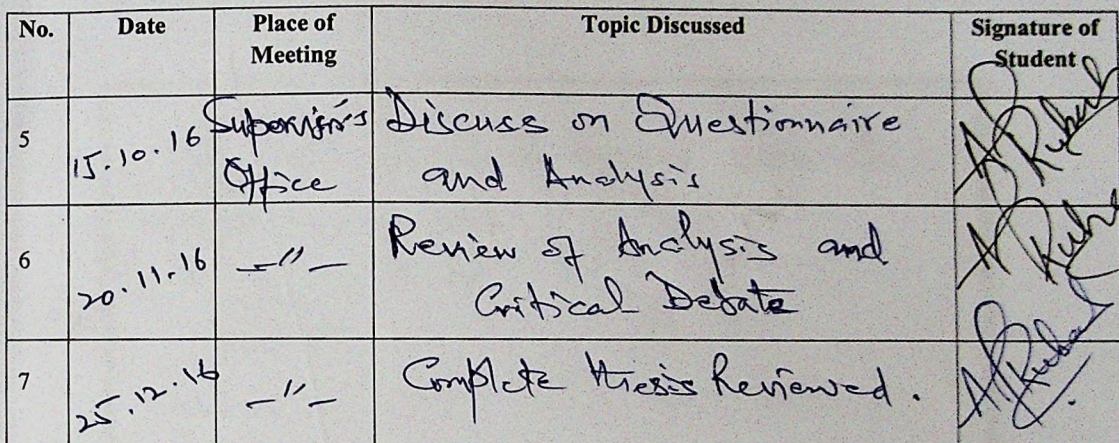 No. Date Place of Meeting Topic Discussed Signature of Student
5 15.10.16 Supervisor's Office Discuss on Questionnaire and Analysis
6 20.11.16 —"— Review of Analysis and Critical Debate
7 25.12.16 —"— Complete thesis Reviewed.